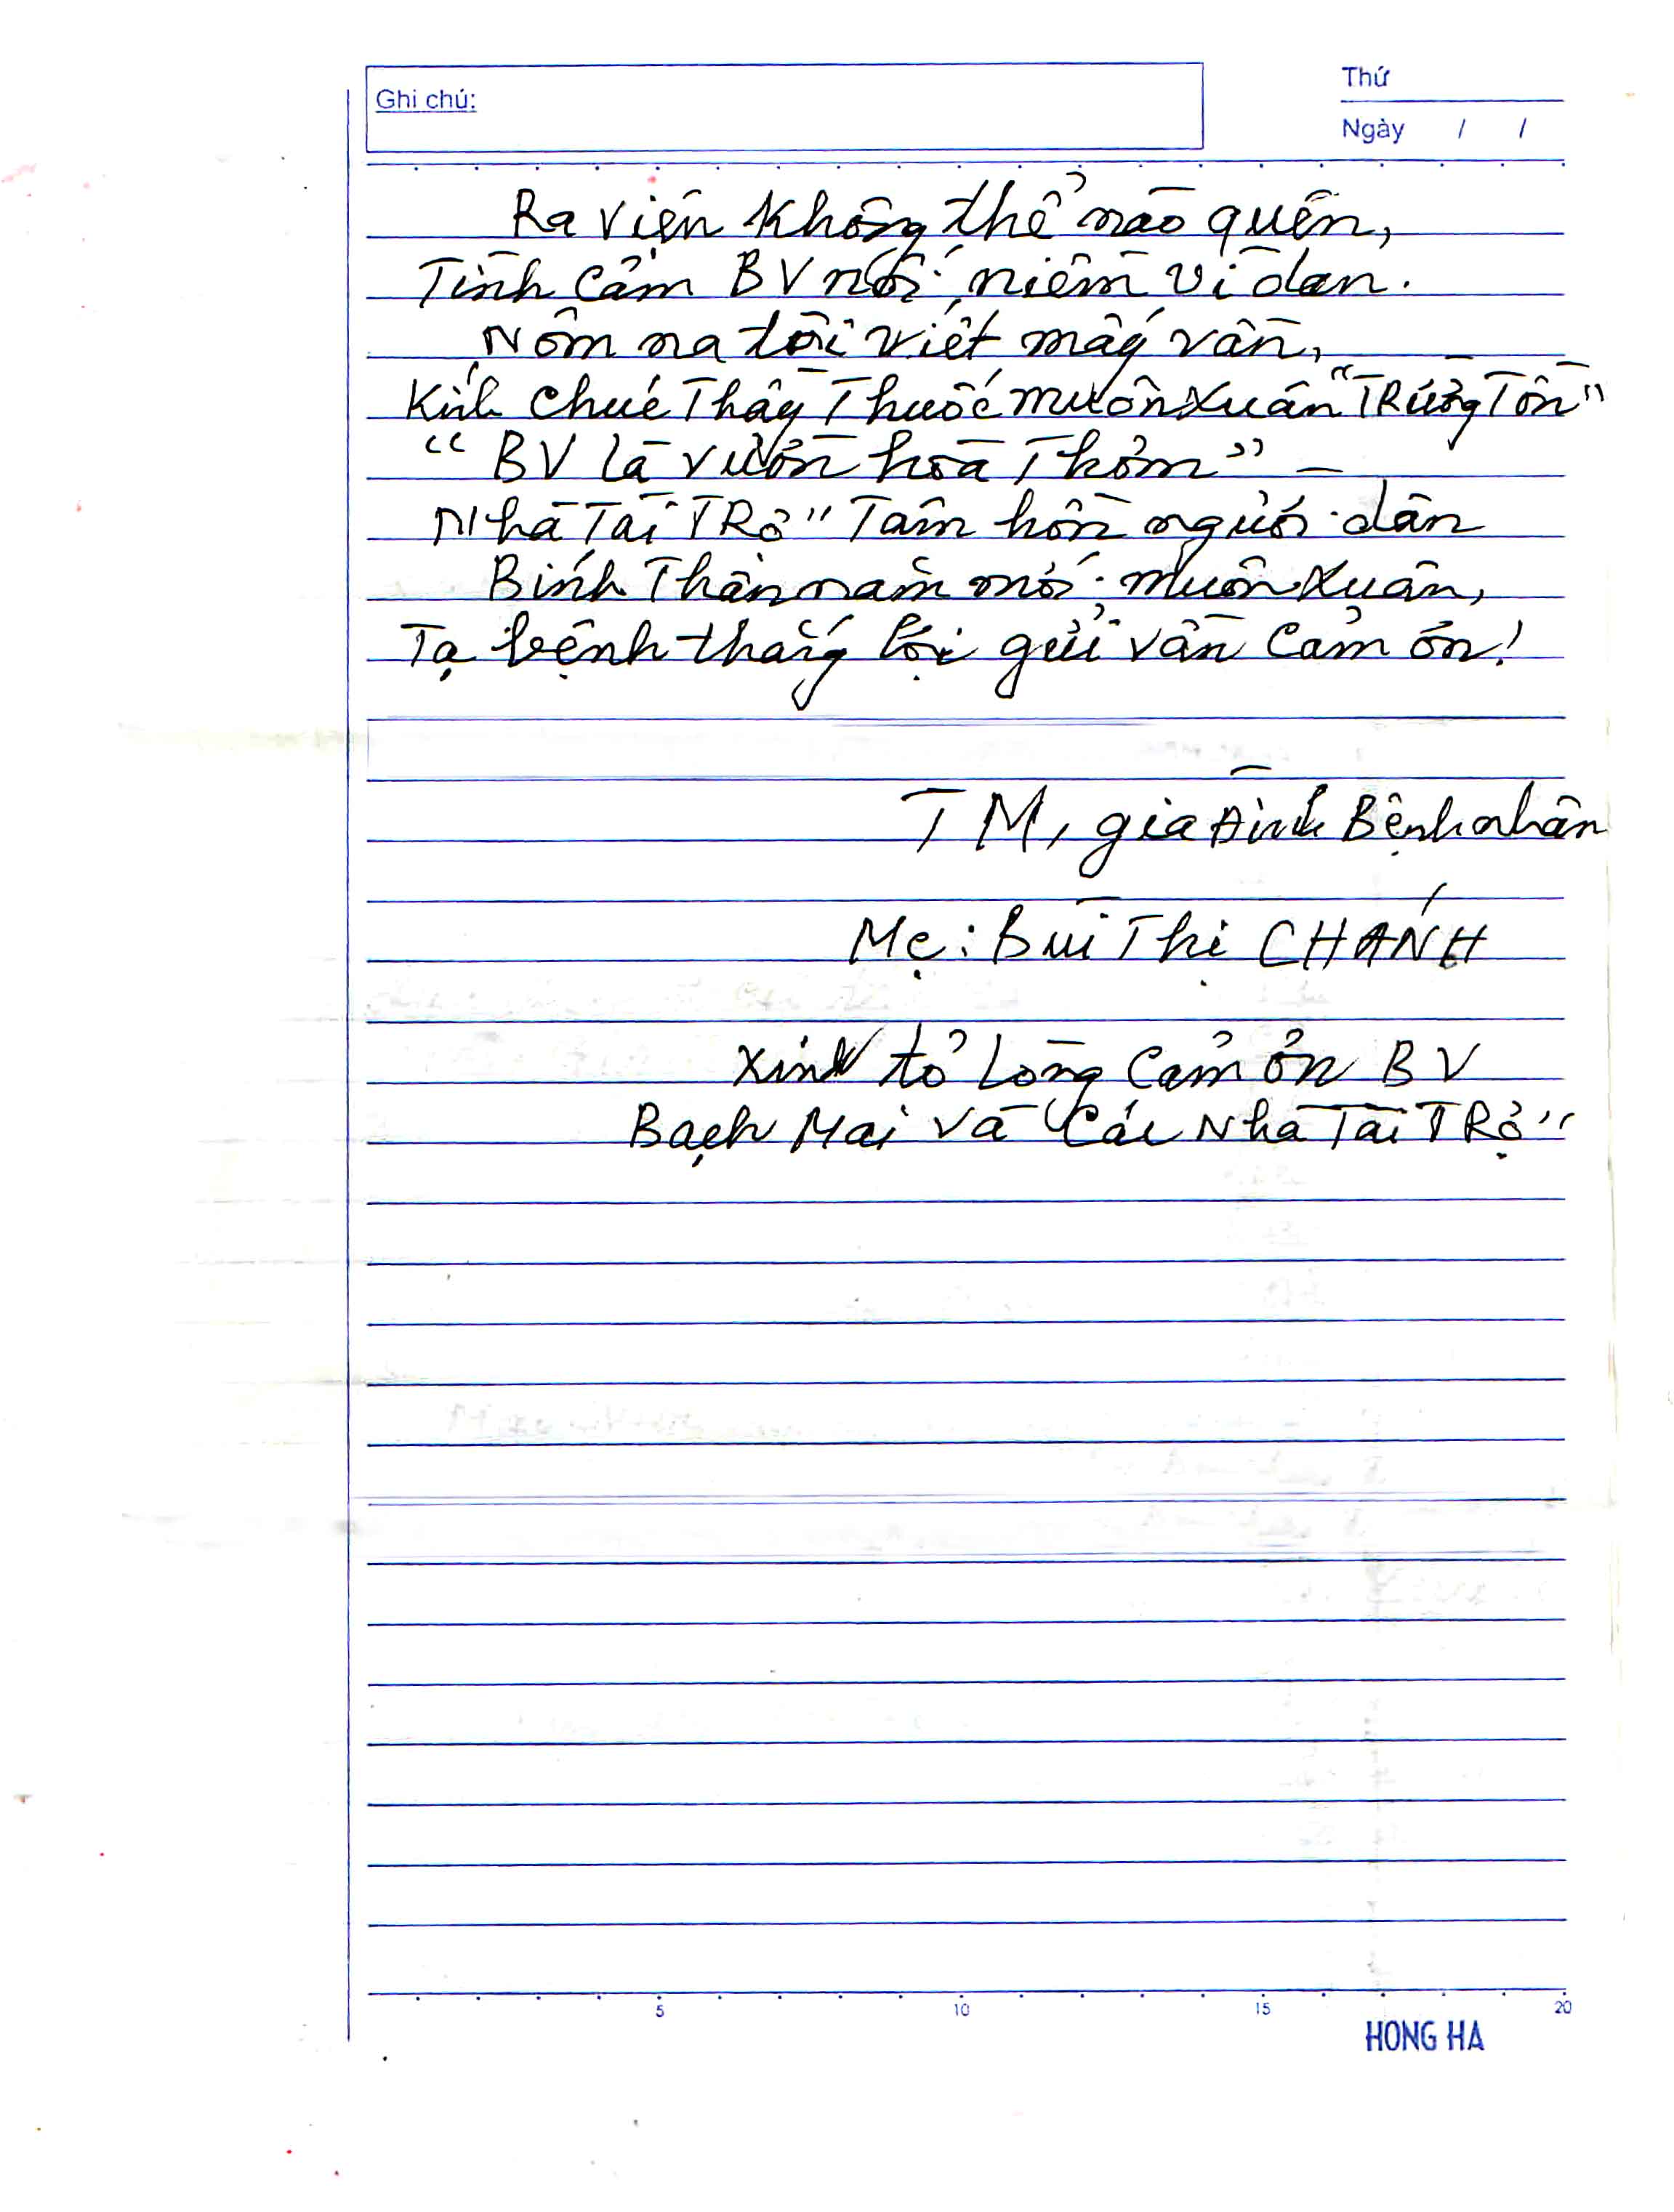 Ghi chú:
Thứ
Ngày / /
Ra viện không thể nào quên,
Tình cảm BV với niềm vì dân.
Nôm na tôi viết mấy vần,
Kính chúc Thầy Thuốc muôn xuân "TRường Tồn"
"BV là vườn hoa Thơm" –
Nhà Tài TRợ" Tâm hồn người dân
Bính Thân năm mới muôn xuân,
Tạ bệnh thắng lợi gửi vần cảm ơn!
TM, gia đình Bệnh nhân
Mẹ: Bùi Thị CHÁNH
Xin tỏ lòng cảm ơn BV
Bạch Mai và "Các Nhà Tài TRợ"
5 10 15 20
HONG HA